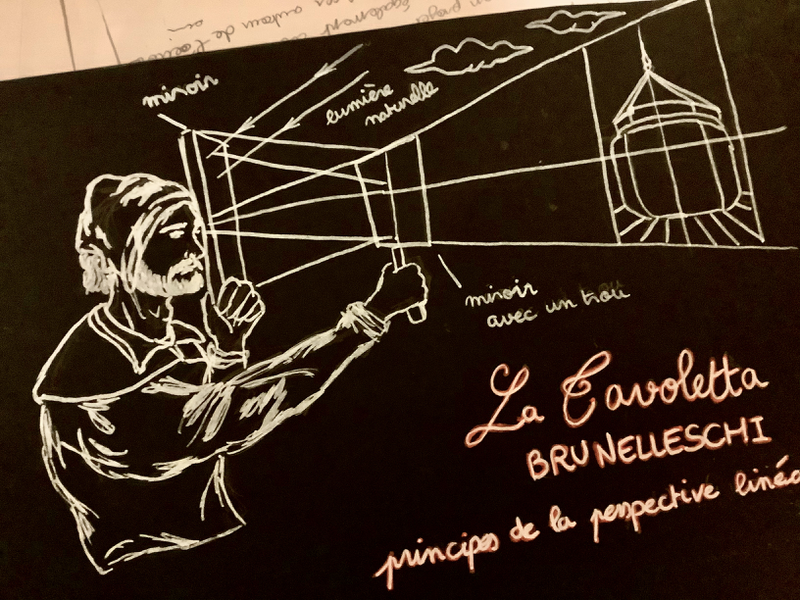 miroir
lumière
naturelle
miroir
avec un trou
La Tavoletta
BRUNELLESCHI
principes de la perspective linéa